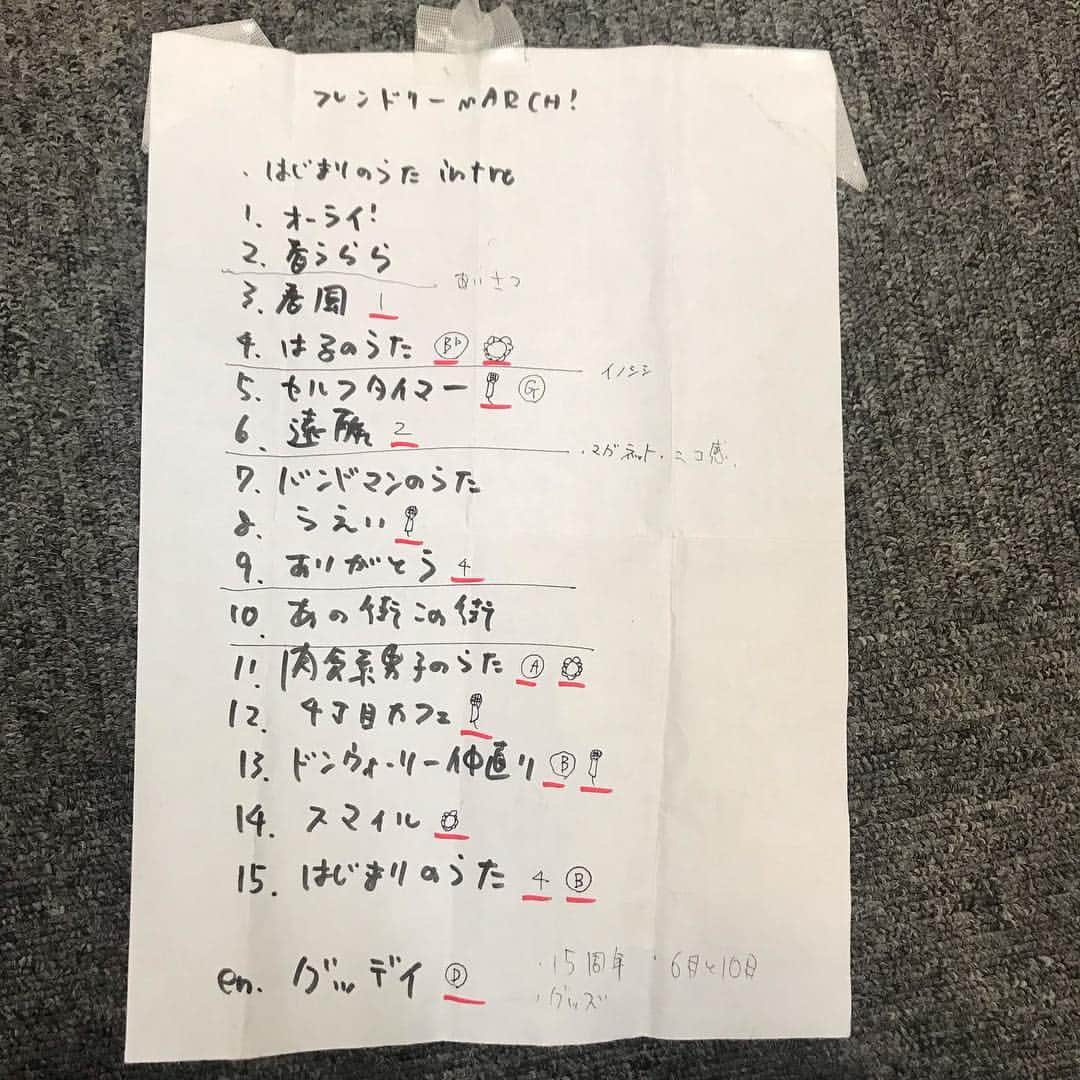 フレンドリーMARCH!
・はじまりのうた intro
1. オーライ!
2. 春うらら
あいさつ
3. 春風 1
4. はるのうた B♭
イノシシ
5. セルフタイマー G
6. 遠距離 2
・マガネット・ニコ感.
7. バンドマンのうた
8. うえい
9. ありがとう 4
10. あの街この街
11. 肉食系男子のうた A
12. 4丁目カフェ
13. ドンウォーリー仲直り B
14. スマイル
15. はじまりのうた 4 B
en. グッデイ D
・15周年 ・6月と10月
・グッズ